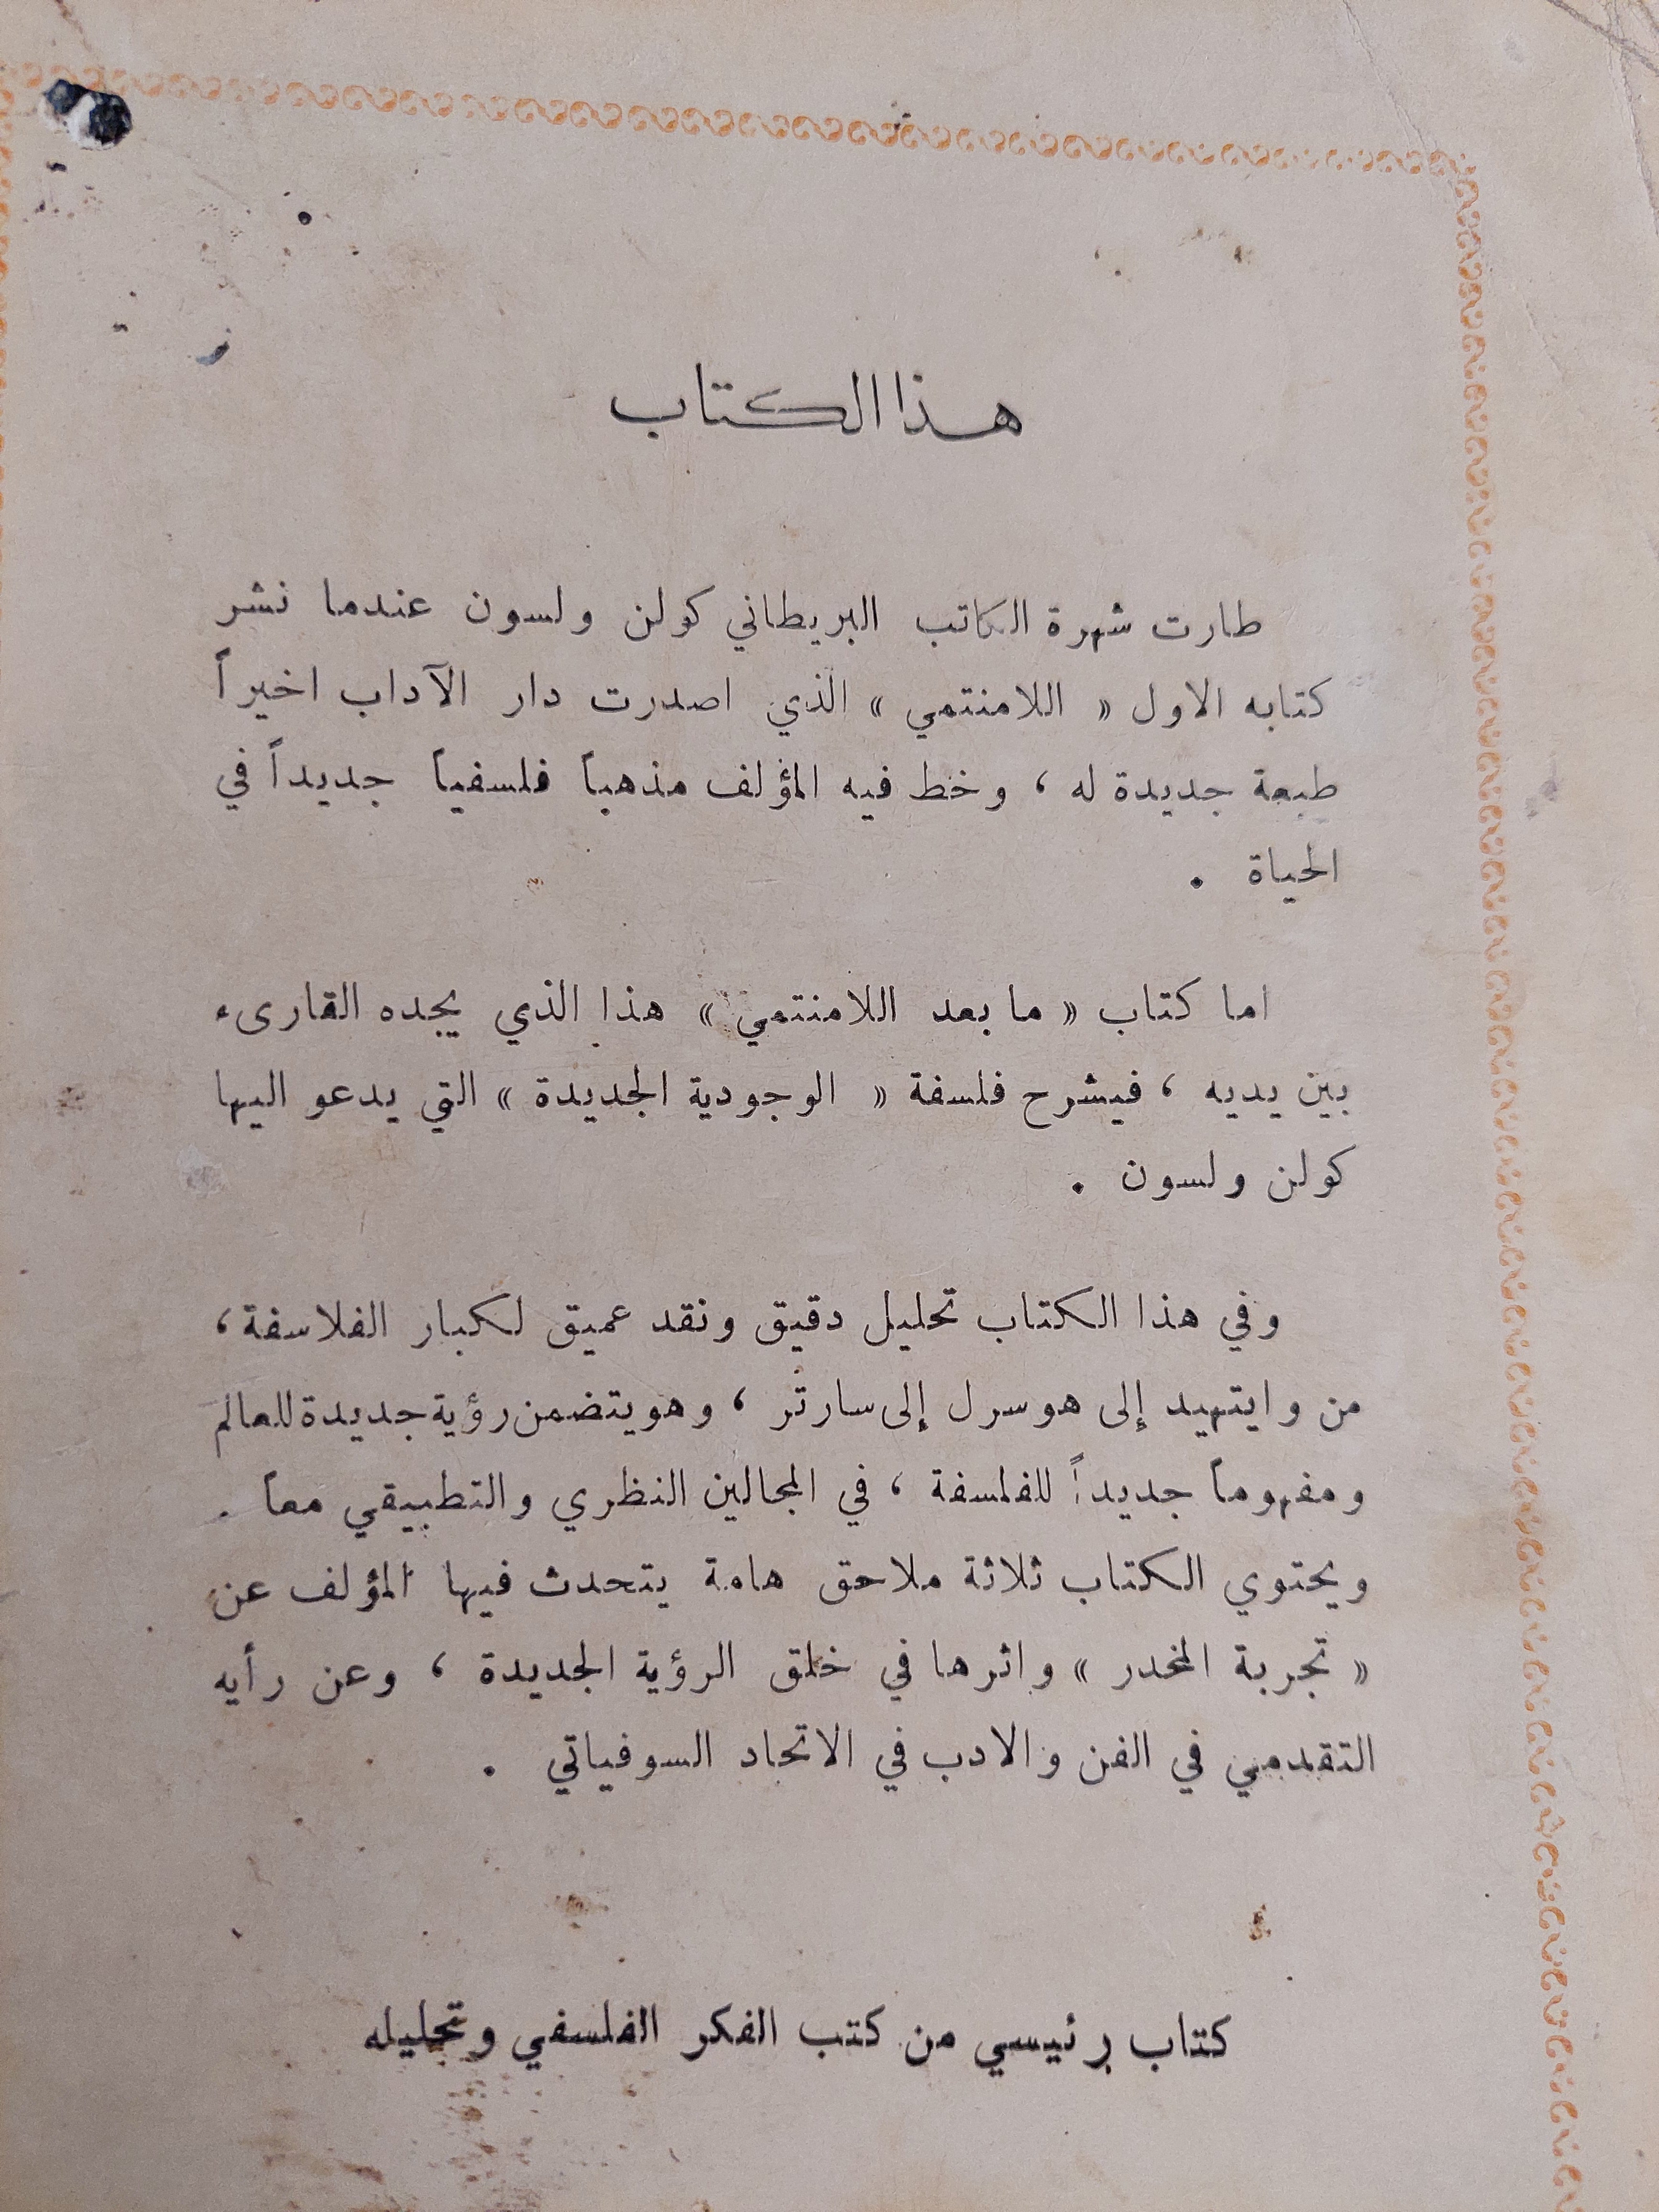 هذا الكتاب
طارت شهرة الكاتب البريطاني كولن ولسون عندما نشر
كتابه الاول « اللامنتمي » الذي اصدرت دار الآداب اخيراً
طبعة جديدة له ، وخط فيه المؤلف مذهباً فلسفياً جديداً في
الحياة .
اما كتاب « ما بعد اللامنتمي » هذا الذي يجده القارىء
بين يديه ، فيشرح فلسفة « الوجودية الجديدة » التي يدعو اليها
كولن ولسون .
وفي هذا الكتاب تحليل دقيق ونقد عميق لكبار الفلاسفة ،
من وايتهيد إلى هوسرل إلى سارتر ، وهو يتضمن رؤية جديدة للعالم
ومفهوماً جديداً للفلسفة ، في المجالين النظري والتطبيقي معاً .
ويحتوي الكتاب ثلاثة ملاحق هامة يتحدث فيها المؤلف عن
« تجربة المخدر » واثرها في خلق الرؤية الجديدة ، وعن رأيه
التقدمي في الفن والادب في الاتحاد السوفياتي .
كتاب رئيسي من كتب الفكر الفلسفي وتحليله